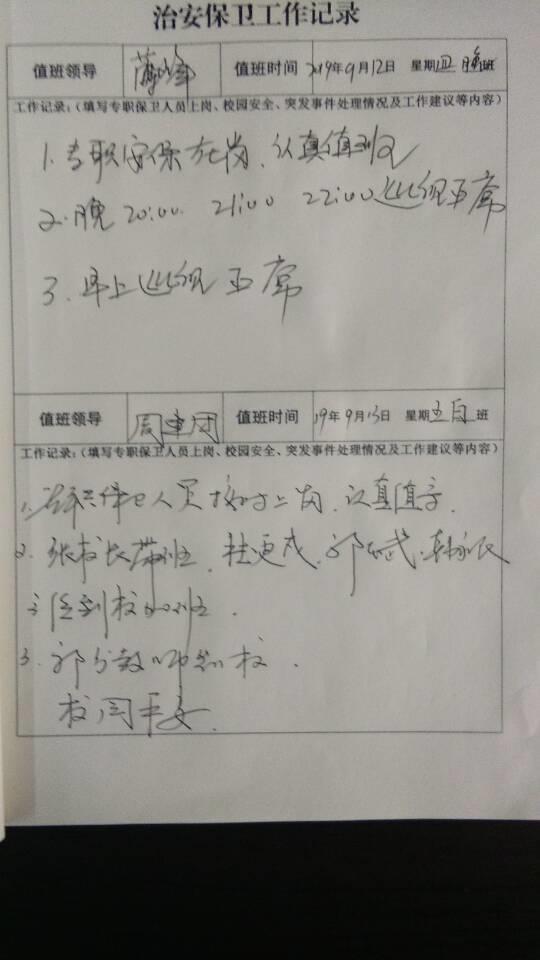 治安保卫工作记录
值班领导 值班时间 2019年9月12日 星期四 晚班
工作记录：（填写专职保卫人员上岗、校园安全、突发事件处理情况及工作建议等内容）
1.专职安保在岗、认真值班
2.晚 20:00. 21:00 22:00 巡视正常
3.早上巡视正常
值班领导 周建团 值班时间 19年9月13日 星期五 白班
工作记录：（填写专职保卫人员上岗、校园安全、突发事件处理情况及工作建议等内容）
1.专职保卫人员按时上岗、认真值守.
2.张校长带班、
到校
3.部分教师到校.
校园平安.